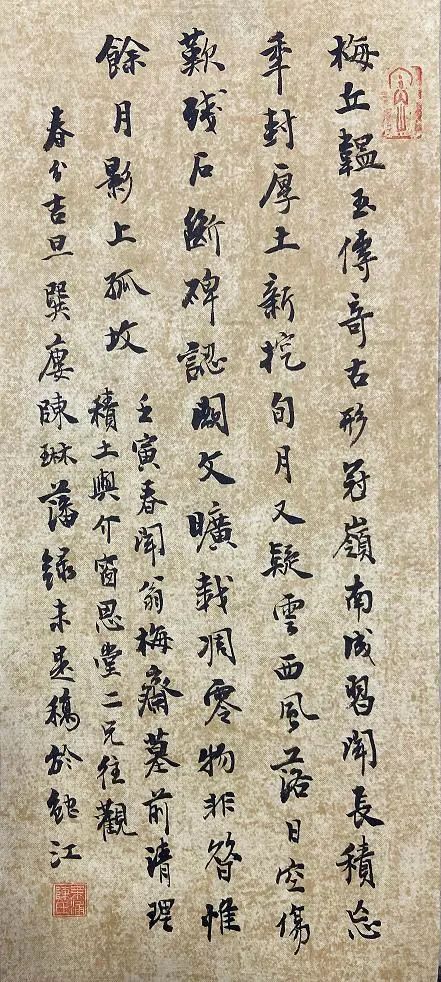 梅丘韞玉傳奇古形冠嶺南成習聞長積忘
年封厚土新挖旬月又疑雲西風落日空傷
歎殘石斷碑認闕文曠載凋零物非惟
餘月影上孤坟
壬寅春聞翁梅齋墓前清理
積土與介窗思堂二兄往觀
春分吉旦巽廔陳琳藩錄未是稿於鮀江